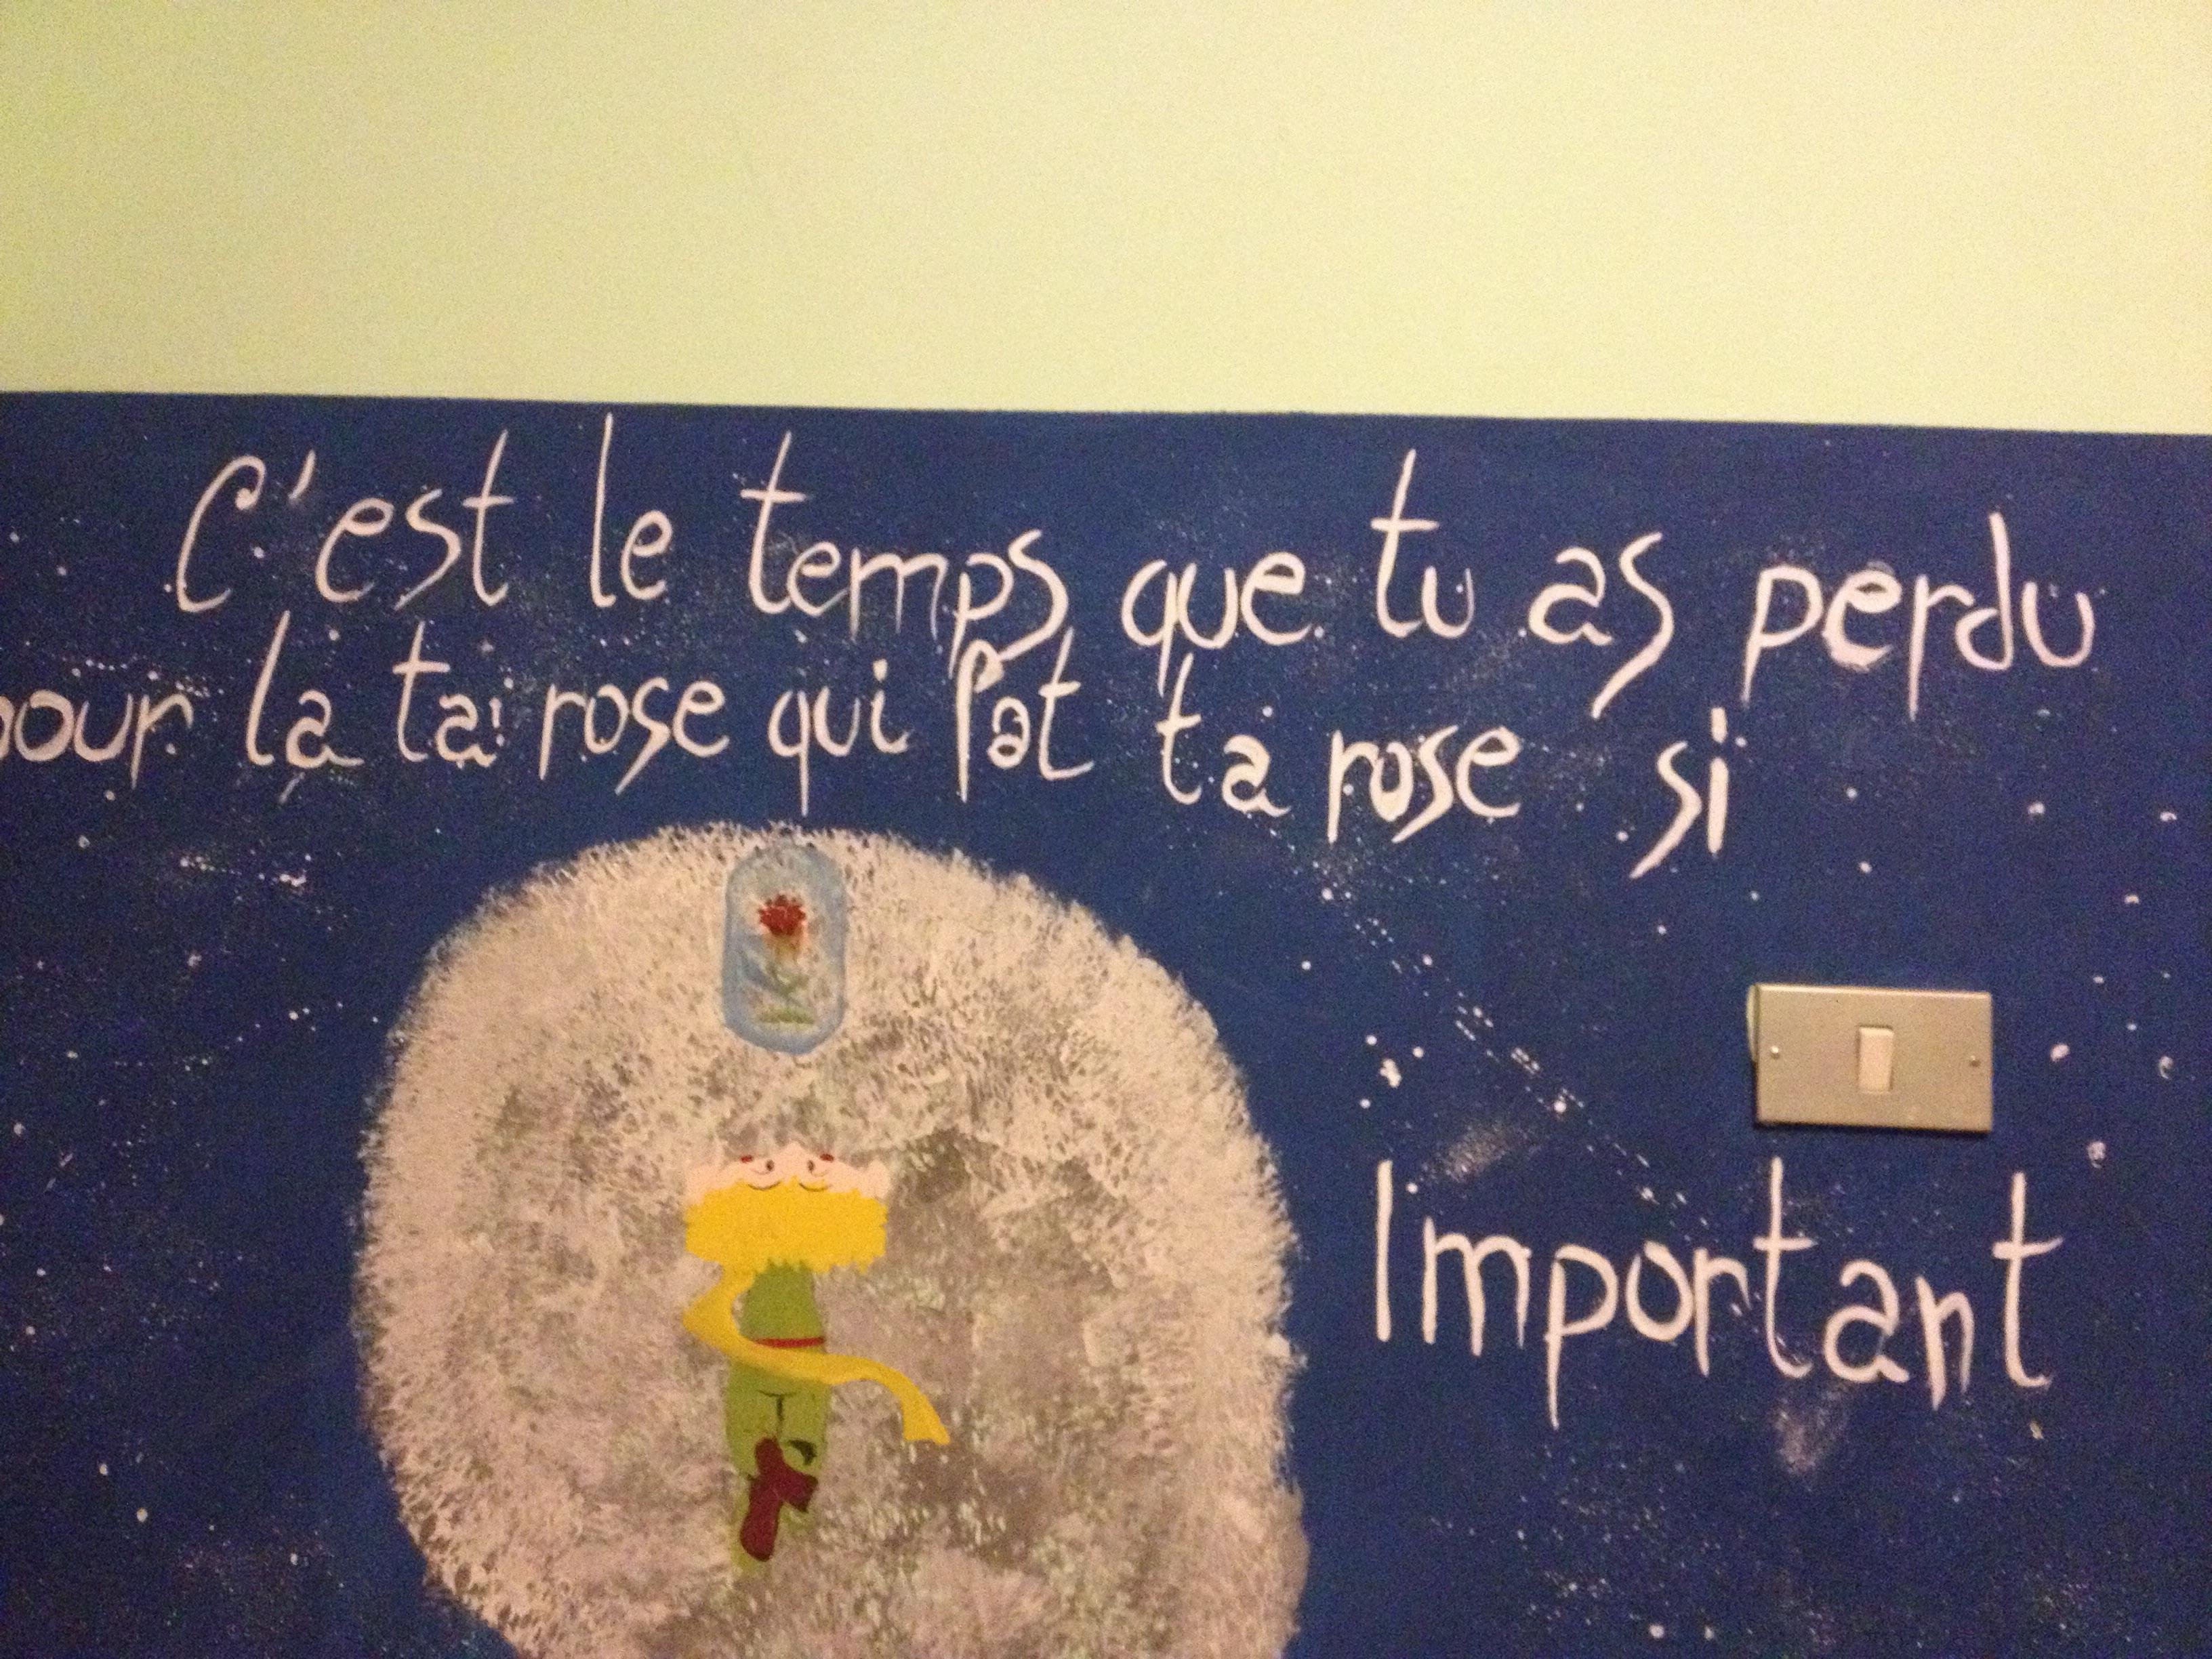 C'est le temps que tu as perdu
pour la ta rose qui fat ta rose si
Important